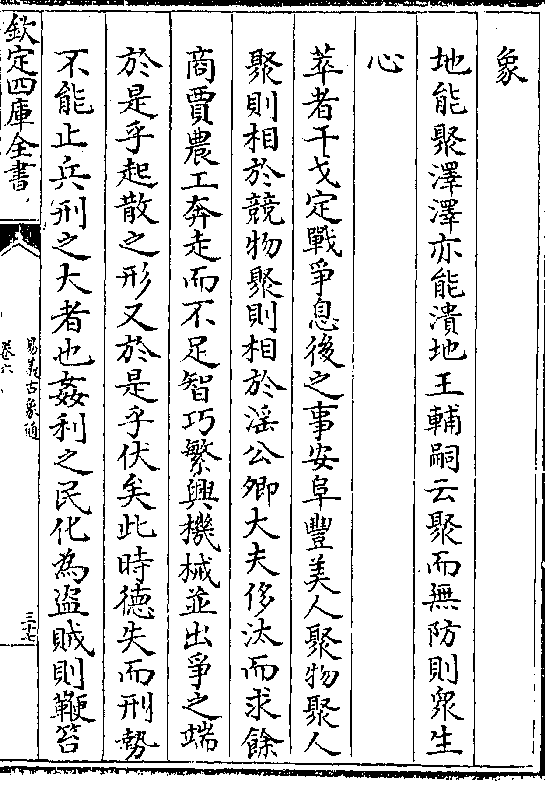 象
地能聚澤澤亦能潰地王輔嗣云聚而無防則衆生
心
萃者干戈定戰爭息後之事安阜豐美人聚物聚人
聚則相於競物聚則相於淫公卿大夫侈汰而求餘
商賈農工奔走而不足智巧繁興機械並出爭之端
於是乎起散之形又於是乎伏矣此時德失而刑勢
不能止兵刑之大者也姦利之民化為盜賊則鞭笞
欽定四庫全書
易義古象通
卷六
三十七